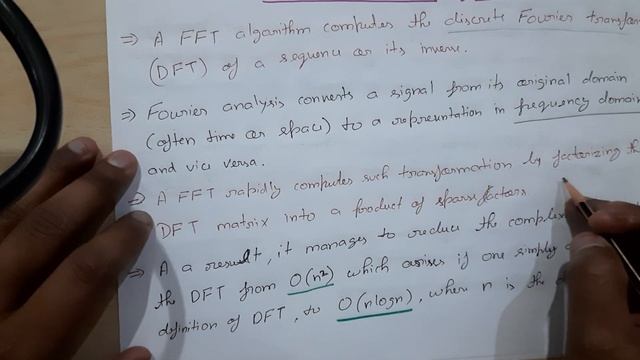 ⇒ A FFT algorithm computes the discrete Fourier transfor
(DFT) of a sequence or its inverse.
⇒ Fourier analysis converts a signal from its original domain
(often time or space) to a representation in frequency domain
and vice versa.
⇒ A FFT rapidly computes such transformation by factorizing th
DFT matrix into a product of sparse factors
⇒ A a result, it manages to reduce the complex
the DFT from O(n²) which arises if one simply
definition of DFT, to O(nlogn), where n is the